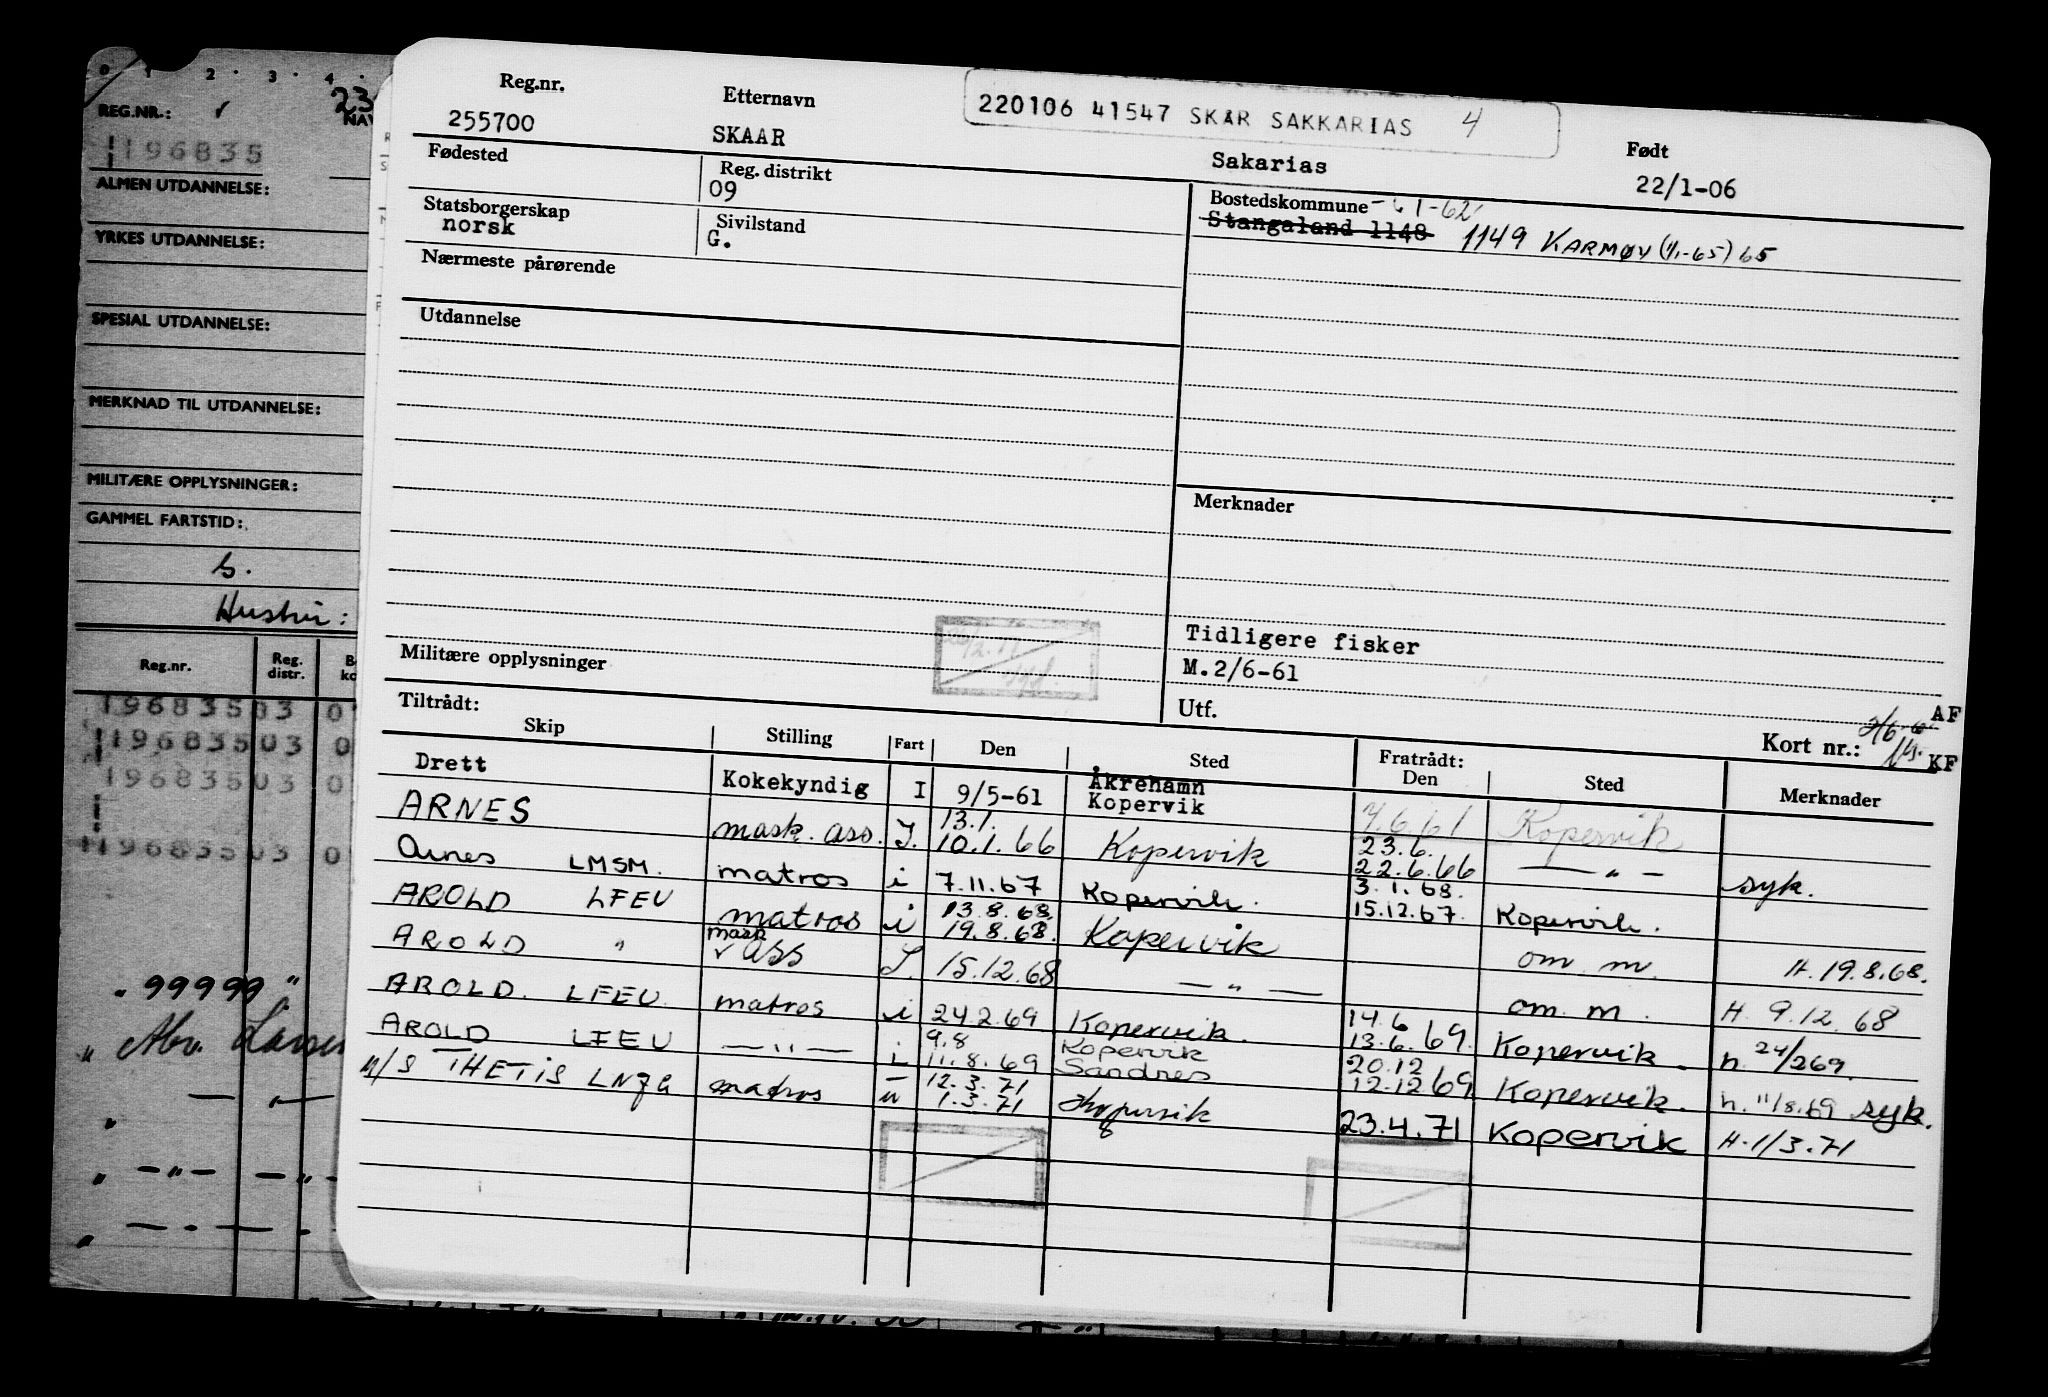 0 1 2 3 4
REG.NR.:
23
196835
ALMEN UTDANNELSE:
YRKES UTDANNELSE:
SPESIAL UTDANNELSE:
MERKNAD TIL UTDANNELSE:
MILITÆRE OPPLYSNINGER:
GAMMEL FARTSTID:
s.
Hustru:
Reg.nr. Reg. distr.
196835 03 0
196835 03 0
196835 03 0
196835 03 0
" 99999 "
220106 41547 SKAR SAKKARIAS 4
Reg.nr. Etternavn Født
255700 SKAAR Sakarias 22/1-06
Fødested Reg. distrikt Bostedskommune
09 Stangaland 1148 1149 KARMØY (1/1-65) 65
Statsborgerskap Sivilstand
norsk G.
Nærmeste pårørende
Utdannelse
Merknader
Tidligere fisker
M.2/6-61
Militære opplysninger
Utf. AF
Kort nr.: KF
Tiltrådt: Fratrådt:
Skip Stilling Fart Den Sted Den Sted Merknader
Drett Kokekyndig I 9/5-61 Åkrehamn Kopervik 7.6.61 Kopervik
ARNES mask. ass. I. 13.1. 10.1.66 Kopervik 23.6. 22.6.66 — " — syk.
Arnes LMSM. matros i 7.11.67 Kopervik. 3.1.68. 15.12.67. Kopervik.
AROLD LFEU matros i 13.8.68. 19.8.68. Kopervik om m. H.19.8.68.
AROLD " mask ass I. 15.12.68 — " — om. m. H. 9.12.68
AROLD. LFEU. matros i 24.2.69 Kopervik. 14.6 13.6.69. Kopervik. h. 24/2 69.
AROLD LFEU — " — i 9.8 11.8.69 Kopervik Sandnes 20.12 12.12 69 Kopervik. h. 11/8.69 syk.
M/S THETIS LNQG matros u 12.3.71 1.3.71 Kopervik 23.4.71 Kopervik H.1/3.71